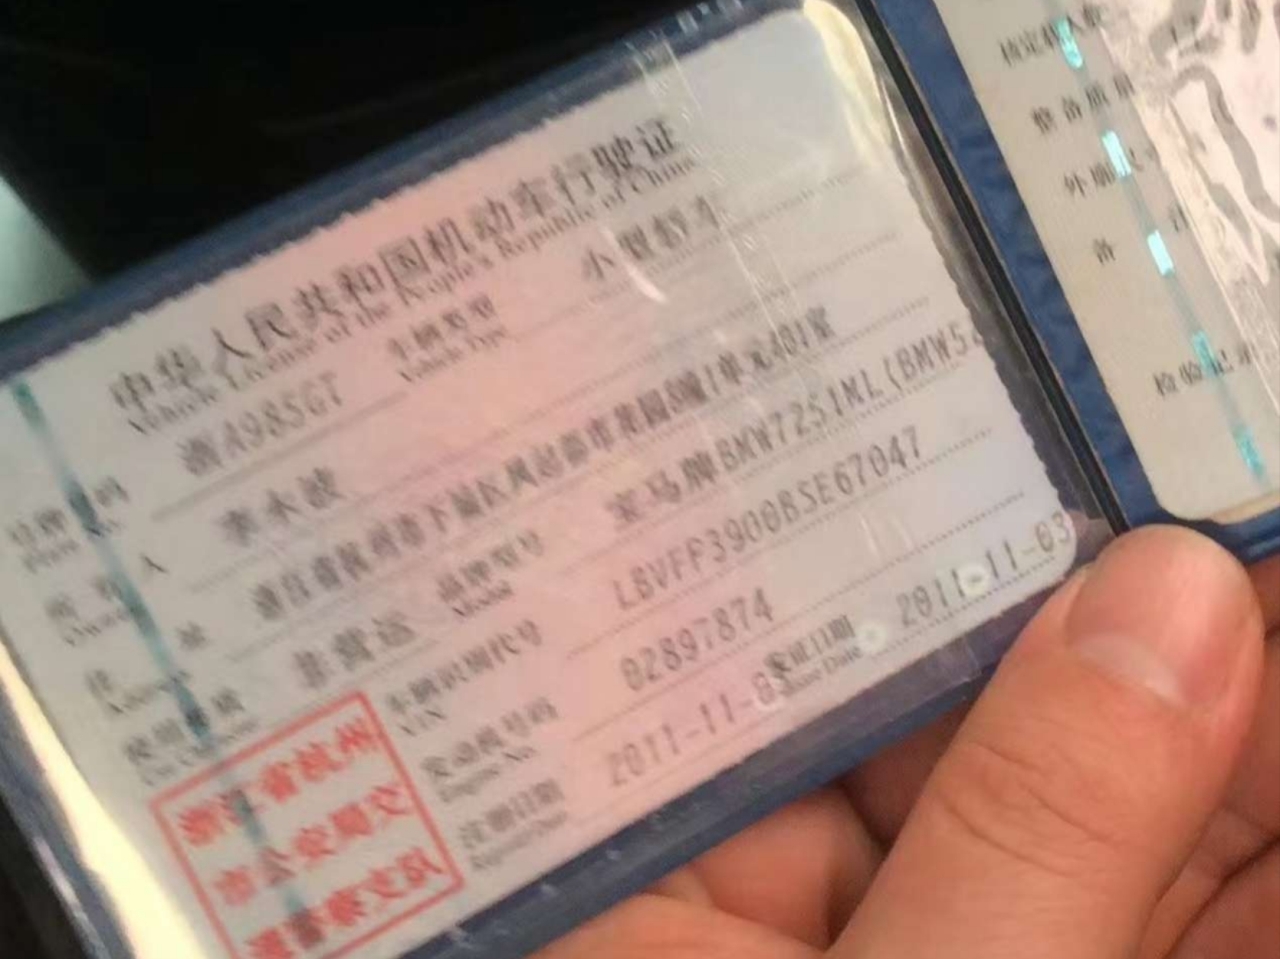 中华人民共和国机动车行驶证
Vehicle License of the People's Republic of China
号牌号码 浙A985GT 车辆类型 小型轿车
Plate No. Vehicle Type
所有人
Owner
住址 浙江省杭州市下城区凤起都市花园 1单元401室
Address
使用性质 非营运 品牌型号 宝马牌BMW7251ML(BMW52
Use Character Model
车辆识别代号 LBVFP3900BSE67047
VIN
发动机号码 02897874
Engine No.
注册日期 2011-11-03 发证日期 2011-11-03
Register Date Issue Date
浙江省杭州
市公安局交
通警察支队
核定载人数
整备质量
外廓尺寸
备注
检验记录